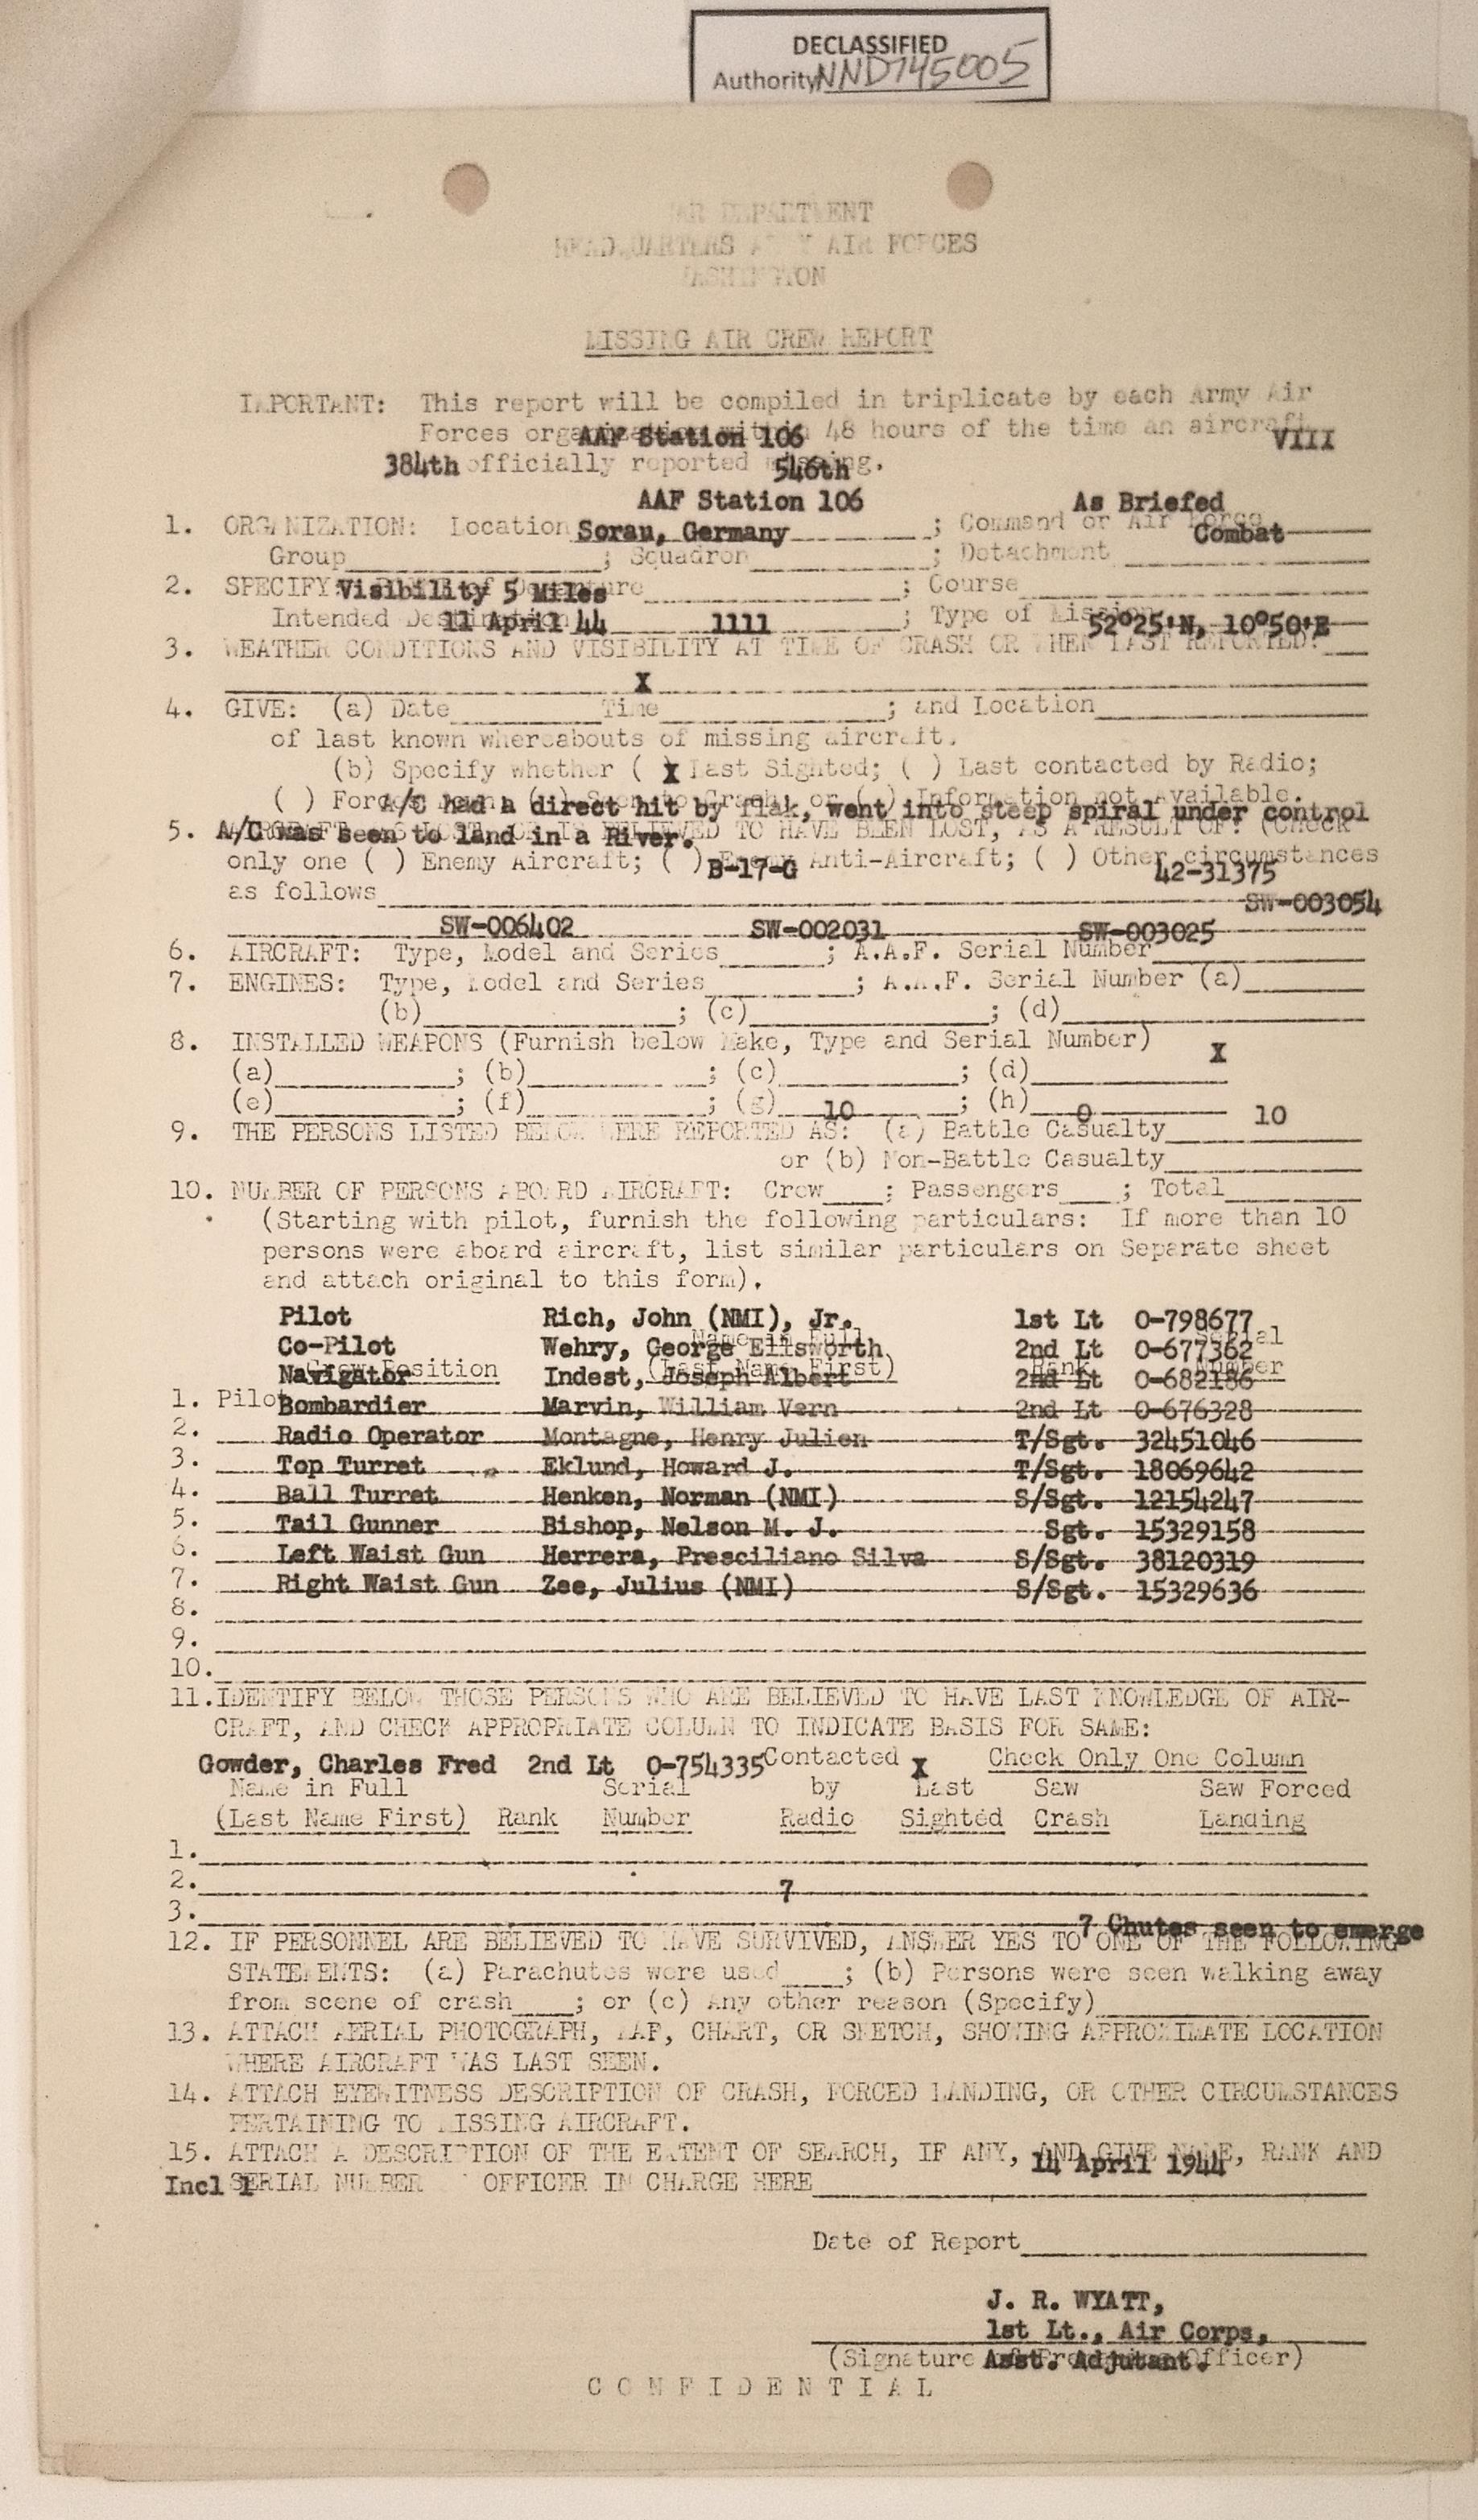 DECLASSIFIED
Authority NND745005
WAR DEPARTMENT
HEADQUARTERS ARMY AIR FORCES
WASHINGTON
MISSING AIR CREW REPORT
IMPORTANT: This report will be compiled in triplicate by each Army Air
Forces organization within 48 hours of the time an aircraft
AAF Station 106 VIII
officially reported missing.
384th 546th
AAF Station 106 As Briefed
1. ORGANIZATION: Location ; Command or Air Force
Sorau, Germany Combat
Group ; Squadron ; Detachment
2. SPECIFY: of Departure ; Course
Visibility 5 Miles
Intended Destination ; Type of Mission
11 April 44 1111 52°25'N, 10°50'E
3. WEATHER CONDITIONS AND VISIBILITY AT TIME OF CRASH OR WHEN LAST REPORTED:
X
4. GIVE: (a) Date Time ; and Location
of last known whereabouts of missing aircraft.
(b) Specify whether ( ) Last Sighted; ( ) Last contacted by Radio;
X
( ) Forced Down; ( ) Seen to Crash; or ( ) Information not Available.
A/C had a direct hit by flak, went into steep spiral under control
5. AIRCRAFT WAS LOST, OR IS BELIEVED TO HAVE BEEN LOST, AS A RESULT OF: (Check
A/C was seen to land in a River.
only one ( ) Enemy Aircraft; ( ) Enemy Anti-Aircraft; ( ) Other circumstances
B-17-G 42-31375
as follows
SW-003054
SW-006402 SW-002031 SW-003025
6. AIRCRAFT: Type, Model and Series ; A.A.F. Serial Number
7. ENGINES: Type, Model and Series ; A.A.F. Serial Number (a)
(b) ; (c) ; (d)
8. INSTALLED WEAPONS (Furnish below Make, Type and Serial Number)
X
(a) ; (b) ; (c) ; (d)
(e) ; (f) ; (g) ; (h)
10 0 10
9. THE PERSONS LISTED BELOW WERE REPORTED AS: (a) Battle Casualty
or (b) Non-Battle Casualty
10. NUMBER OF PERSONS ABOARD AIRCRAFT: Crew ; Passengers ; Total
(Starting with pilot, furnish the following particulars: If more than 10
persons were aboard aircraft, list similar particulars on Separate sheet
and attach original to this form).
Pilot Rich, John (NMI), Jr. 1st Lt 0-798677
Name in Full Serial
Co-Pilot Wehry, George Ellsworth 2nd Lt 0-677362
Crew Position (Last Name First) Rank Number
Navigator Indest, Joseph Albert 2nd Lt 0-682186
1. Pilot
Bombardier Marvin, William Vern 2nd Lt 0-676328
2.
Radio Operator Montagne, Henry Julien T/Sgt. 32451046
3.
Top Turret Eklund, Howard J. T/Sgt. 18069642
4.
Ball Turret Henken, Norman (NMI) S/Sgt. 12154247
5.
Tail Gunner Bishop, Nelson M. J. Sgt. 15329158
6.
Left Waist Gun Herrera, Presciliano Silva S/Sgt. 38120319
7.
Right Waist Gun Zee, Julius (NMI) S/Sgt. 15329636
8.
9.
10.
11. IDENTIFY BELOW THOSE PERSONS WHO ARE BELIEVED TO HAVE LAST KNOWLEDGE OF AIR-
CRAFT, AND CHECK APPROPRIATE COLUMN TO INDICATE BASIS FOR SAME:
Gowder, Charles Fred 2nd Lt 0-754335 Contacted X Check Only One Column
Name in Full Serial by Last Saw Saw Forced
(Last Name First) Rank Number Radio Sighted Crash Landing
1.
2.
7
3.
7 Chutes seen to emerge
12. IF PERSONNEL ARE BELIEVED TO HAVE SURVIVED, ANSWER YES TO ONE OF THE FOLLOWING
STATEMENTS: (a) Parachutes were used ; (b) Persons were seen walking away
from scene of crash ; or (c) Any other reason (Specify)
13. ATTACH AERIAL PHOTOGRAPH, MAP, CHART, OR SKETCH, SHOWING APPROXIMATE LOCATION
WHERE AIRCRAFT WAS LAST SEEN.
14. ATTACH EYEWITNESS DESCRIPTION OF CRASH, FORCED LANDING, OR OTHER CIRCUMSTANCES
PERTAINING TO MISSING AIRCRAFT.
15. ATTACH A DESCRIPTION OF THE EXTENT OF SEARCH, IF ANY, AND GIVE NAME, RANK AND
14 April 1944
SERIAL NUMBER OFFICER IN CHARGE HERE
Incl 1
Date of Report
J. R. WYATT,
1st Lt., Air Corps,
(Signature of Preparing Officer)
Asst. Adjutant.
CONFIDENTIAL